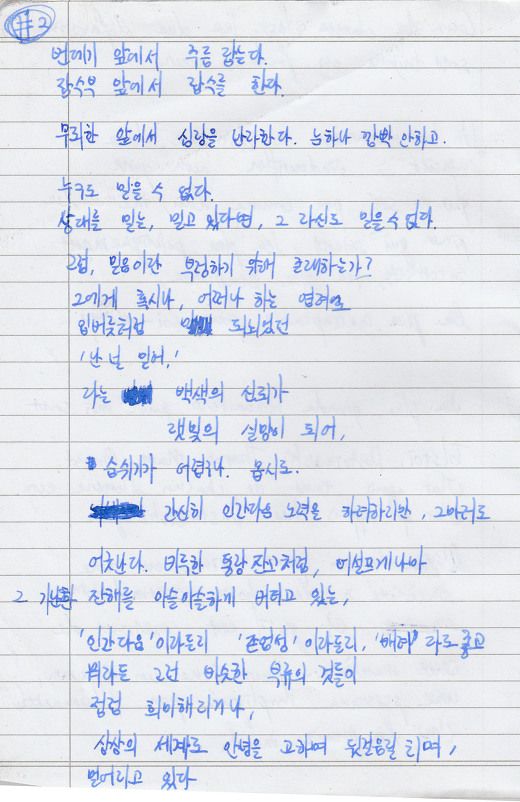 #2
번데기 앞에서 주름 잡는다.
잠수부 앞에서 잠수를 한다.
무뢰한 앞에서 심량을 바라한다. 눈하나 깜빡 안하고.
누구도 믿을 수 없다.
상대를 믿는, 믿고 있다면, 그 자신도 믿을 수 없다.
그럼, 믿음이란 부정하기 위해 존재하는가?
그에게 혹시나, 어쩌나 하는 염려로
입버릇처럼 되뇌었던
'난 널 믿어.'
라는 백색의 신뢰가
잿빛의 실망이 되어,
숨쉬기가 어렵구나. 몹시도.
간신히 인간다운 노력을 하려하지만, 그마저도
어긋난다. 비루한 통장 잔고처럼, 어설프게나마
2. 가난한 잔해를 아슬아슬하게 버티고 있는,
'인간다움'이라든지 '존엄성'이라든지, '배려'라도 좋고
뭐라든 그런 비슷한 부류의 것들이
점점 희미해지거나,
상상의 세계로 안녕을 고하며 뒷걸음질 치며,
멀어지고 있다